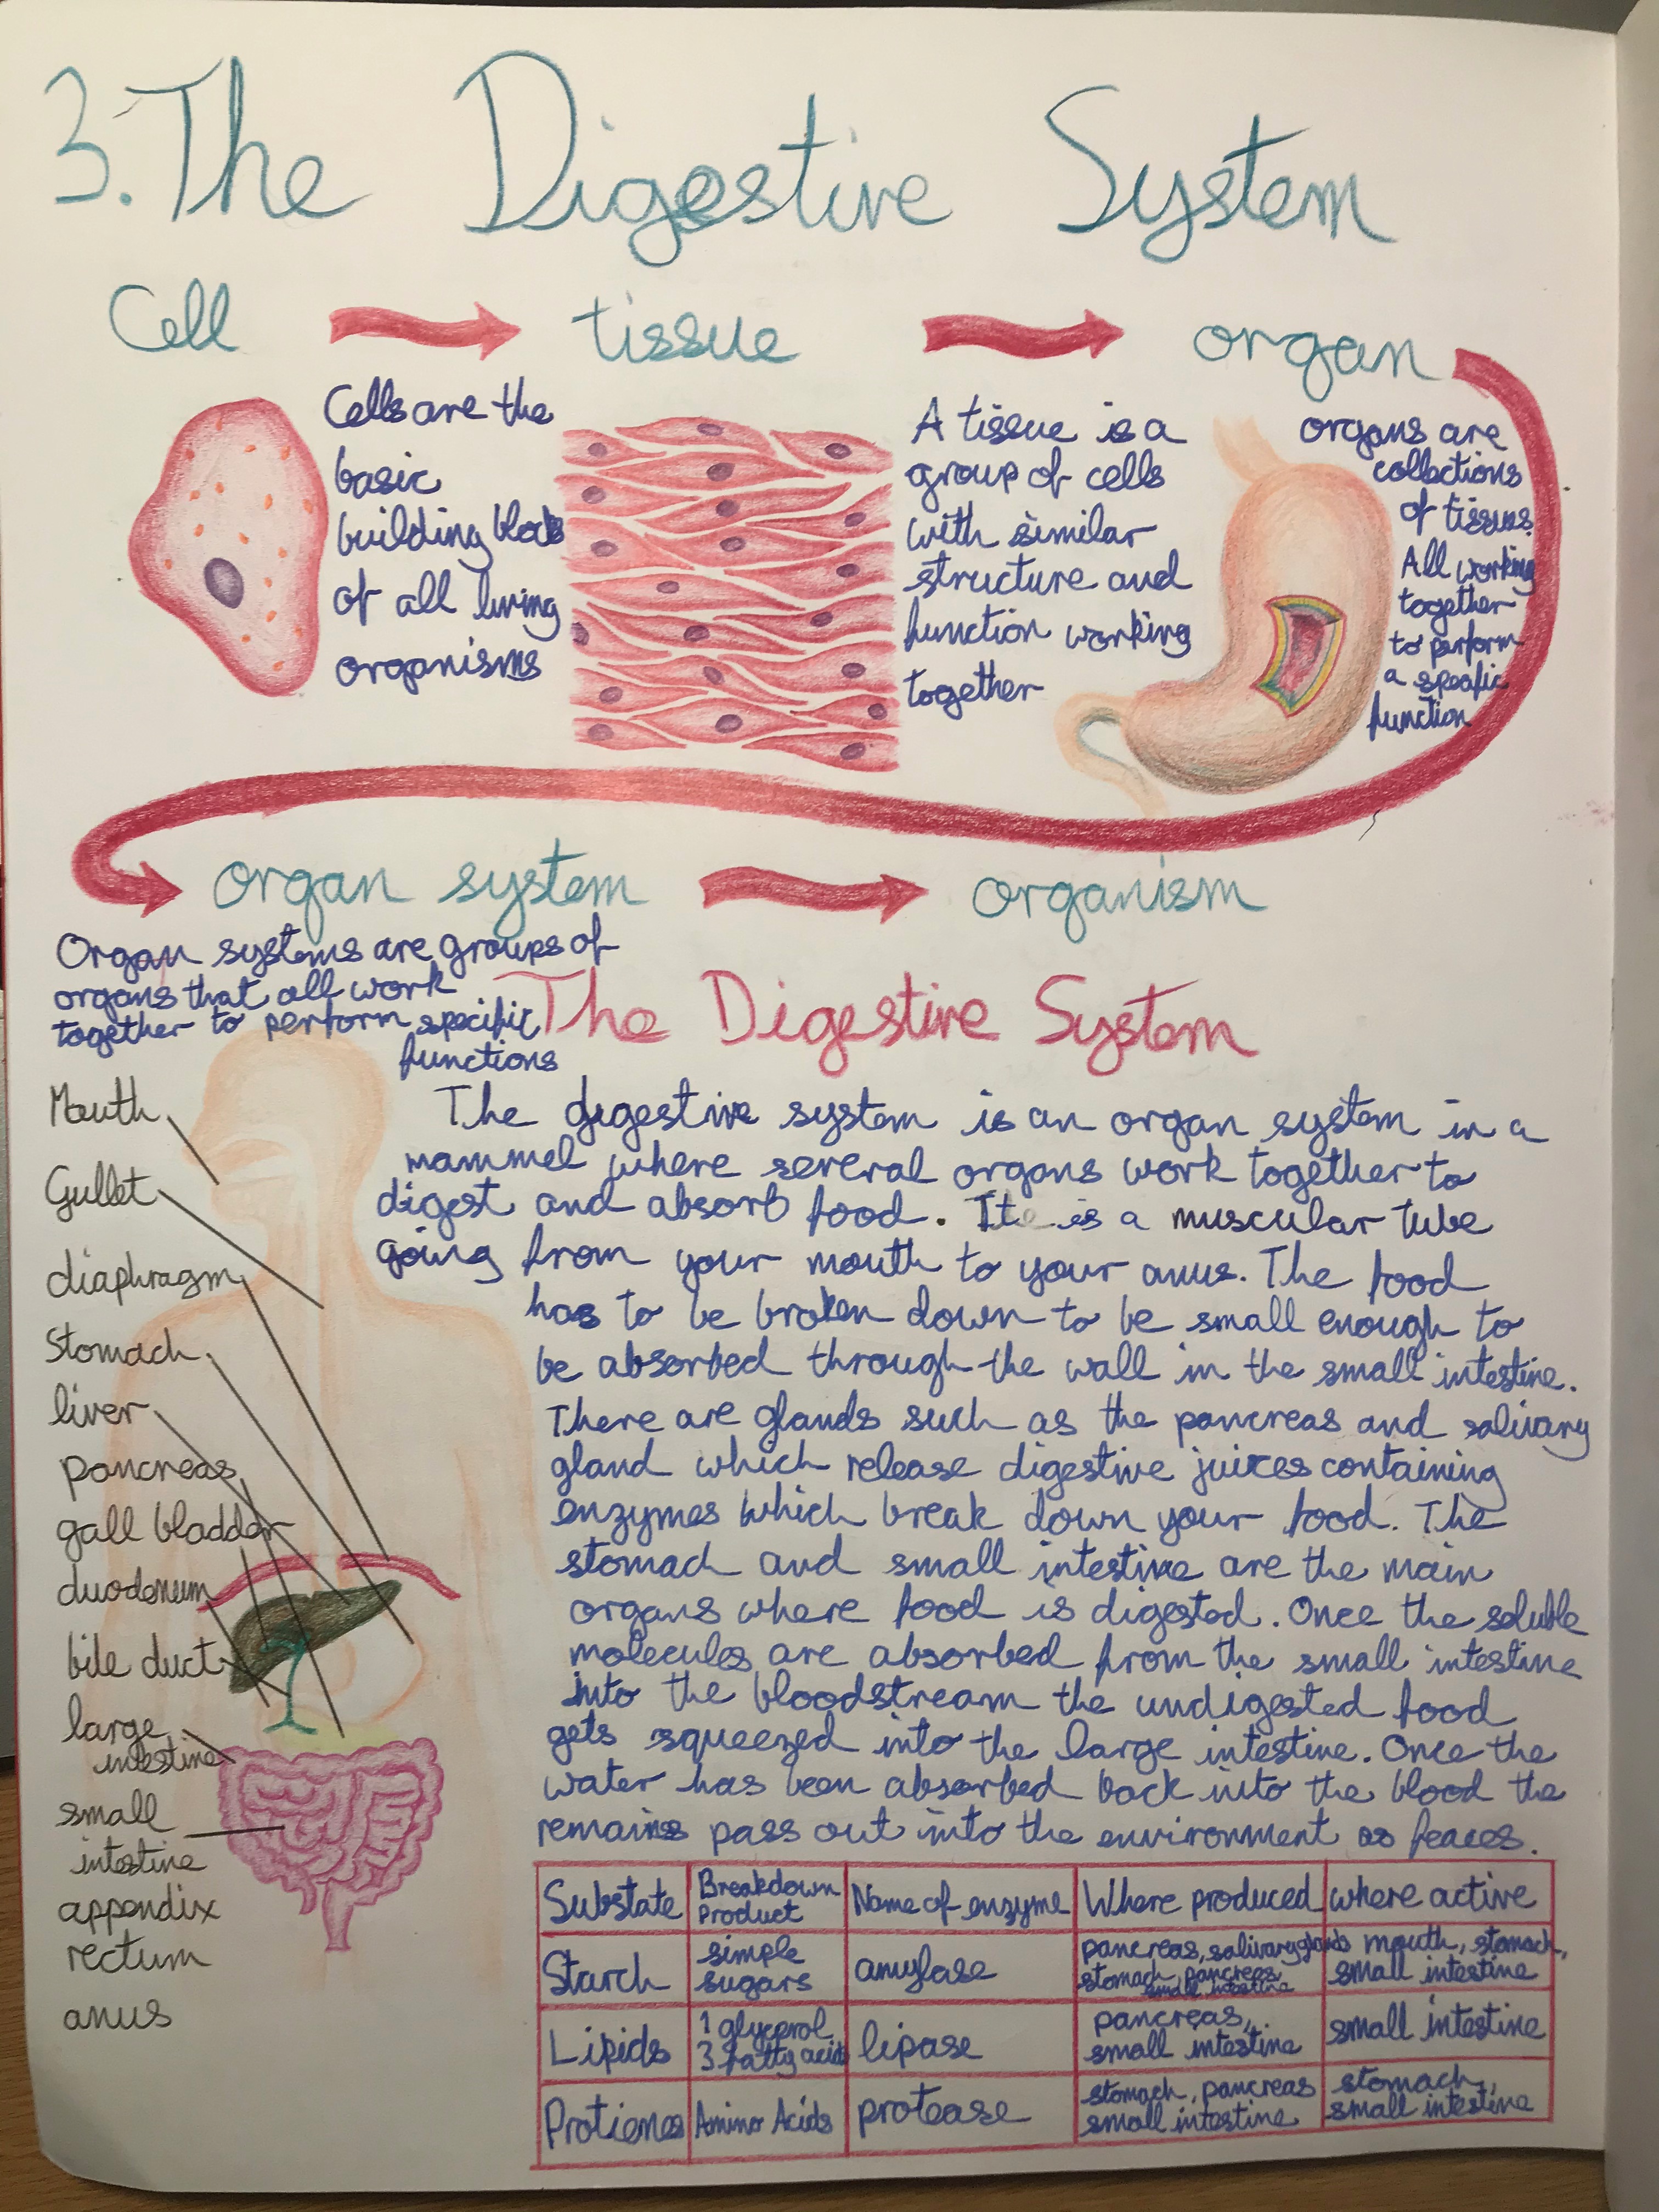 3. The Digestive System
Cell → tissue → organ
Cells are the
basic
building blocks
of all living
organisms
A tissue is a
group of cells
with similar
structure and
function working
together
organs are
collections
of tissues.
All working
together
to perform
a specific
function
organ system → organism
Organ systems are groups of
organs that all work
together to perform specific
functions
The Digestive System
Mouth
Gullet
diaphragm
Stomach
liver
pancreas
gall bladder
duodenum
bile duct
large
intestine
small
intestine
appendix
rectum
anus
The digestive system is an organ system in a
mammel where several organs work together to
digest and absorb food. It is a muscular tube
going from your mouth to your anus. The food
has to be broken down to be small enough to
be absorbed through the wall in the small intestine.
There are glands such as the pancreas and salivary
gland which release digestive juices containing
enzymes which break down your food. The
stomach and small intestine are the main
organs where food is digested. Once the soluble
molecules are absorbed from the small intestine
into the bloodstream the undigested food
gets squeezed into the large intestine. Once the
water has been absorbed back into the blood the
remains pass out into the environment as feaces.
Substate | Breakdown Product | Name of enzyme | Where produced | where active
Starch | simple sugars | amylase | pancreas, salivary glands stomach, pancreas, small intestine | mouth, stomach, small intestine
Lipids | 1 glycerol 3 fatty acids | lipase | pancreas, small intestine | small intestine
Protienes | Amino Acids | protease | stomach, pancreas small intestine | stomach, small intestine